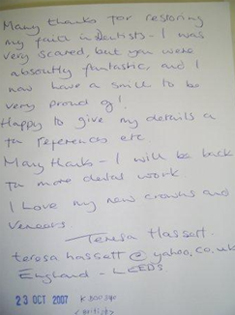 Many thanks for restoring
my faith in Dentists - I was
very scared, but you were
absoutly fantastic, and I
now have a smile to be
very proud of!
Happy to give my details a
for references etc.
Many thanks - I will be back
for more dental work.
I Love my new crowns and
Veneers
Teresa Hassett.
teresa hassett@yahoo.co.uk
England - LEEDS
23 OCT 2007